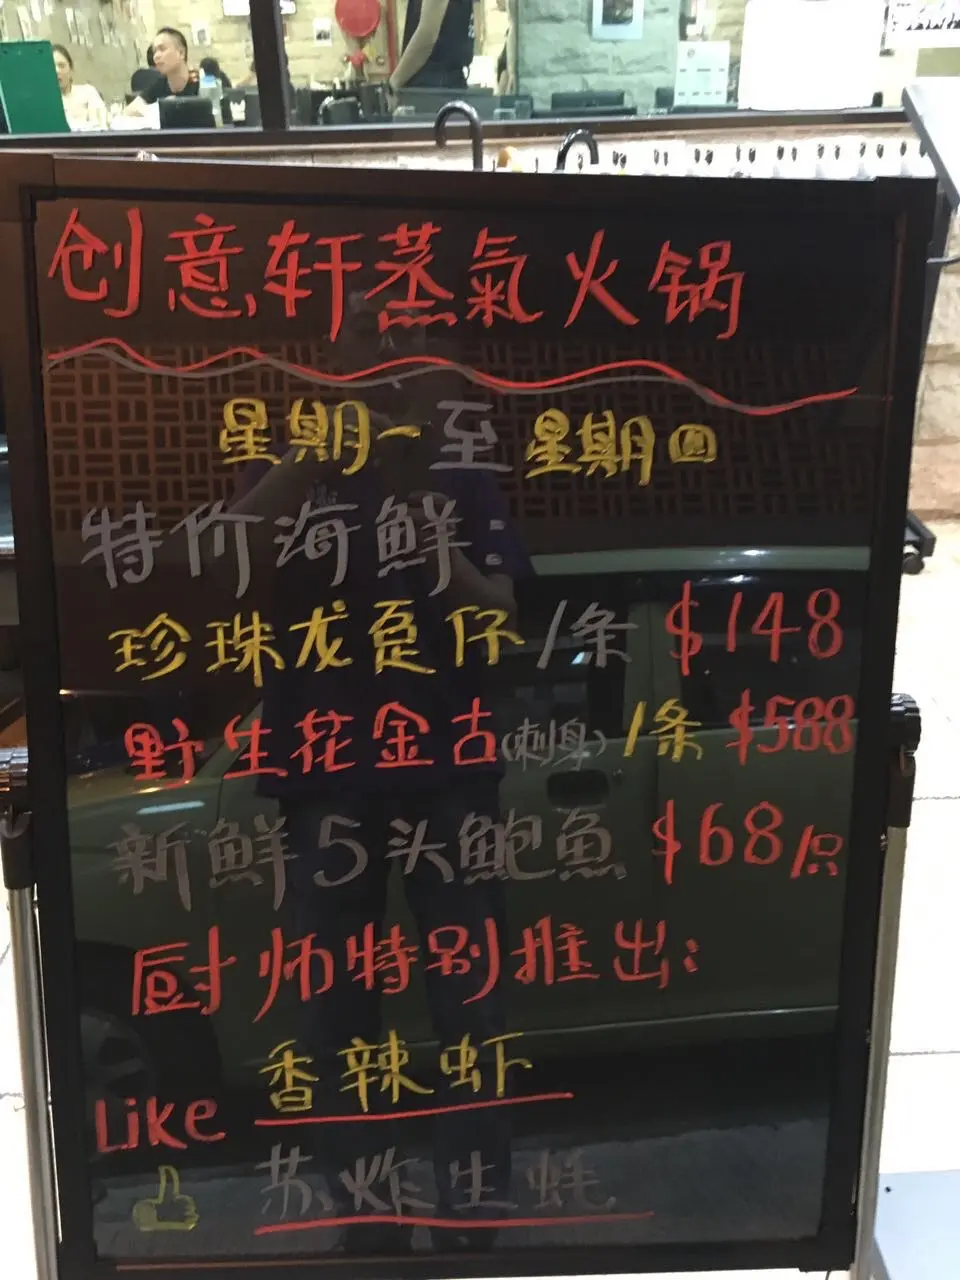 创意轩蒸氣火锅
星期一至星期四
特价海鲜:
珍珠龙趸仔/条 $148
野生花金古(刺身)/条 $588
新鲜5头鲍魚 $68/只
厨师特别推出:
香辣虾
Like
苏炸生蚝